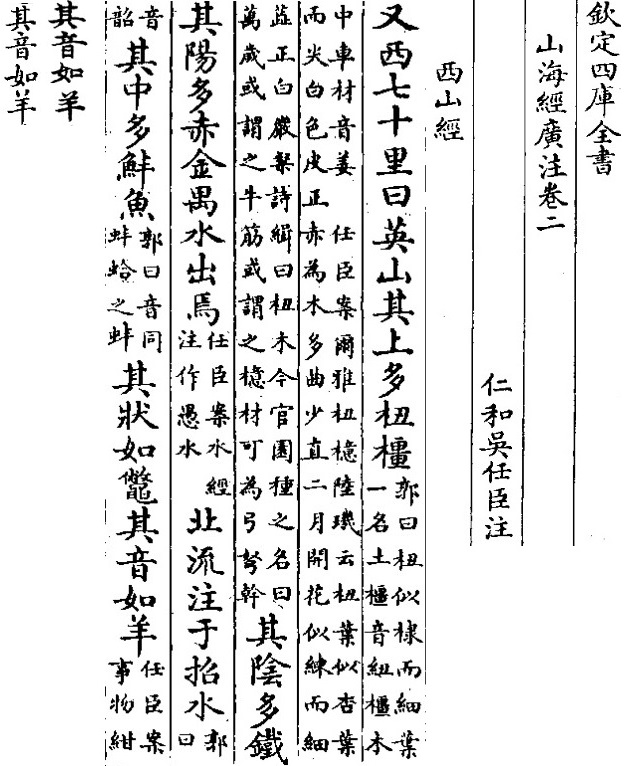 欽定四庫全書
山海經廣注卷二
仁和吳任臣注
西山經
又西七十里曰英山其上多杻橿郭曰杻似棣而細葉一名土橿音紐橿木
中車材音姜任臣案爾雅杻檍陸璣云杻葉似杏葉而尖白色皮正赤為木多曲少直二月開花似練而細
蕋正白嚴粲詩緝曰杻木今官園種之名曰萬歲或謂之牛筋或謂之檍材可為弓弩幹其陰多鐵
其陽多赤金禺水出焉任臣案水經注作愚水北流注于招水郭曰
音韶其中多鮮魚郭曰音同蚌蛤之蚌其狀如鼈其音如羊任臣案事物紺
其音如羊
其音如羊